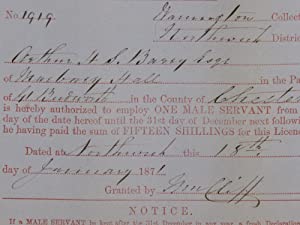 No. 1919 Warrington Collec
Northwich Distric
Arthur H S Barry Esqr
of Marbury Hall in the Pa
of Gt Budworth in the County of Cheste
is hereby authorized to employ ONE MALE SERVANT from
day of the date hereof until the 31st day of December next followi
he having paid the sum of FIFTEEN SHILLINGS for this Licen
Dated at Northwich this 18th
day of January 187
Granted by Cliff
NOTICE.
If a MALE SERVANT be kept after the 31st December in any year, a fresh Declaration